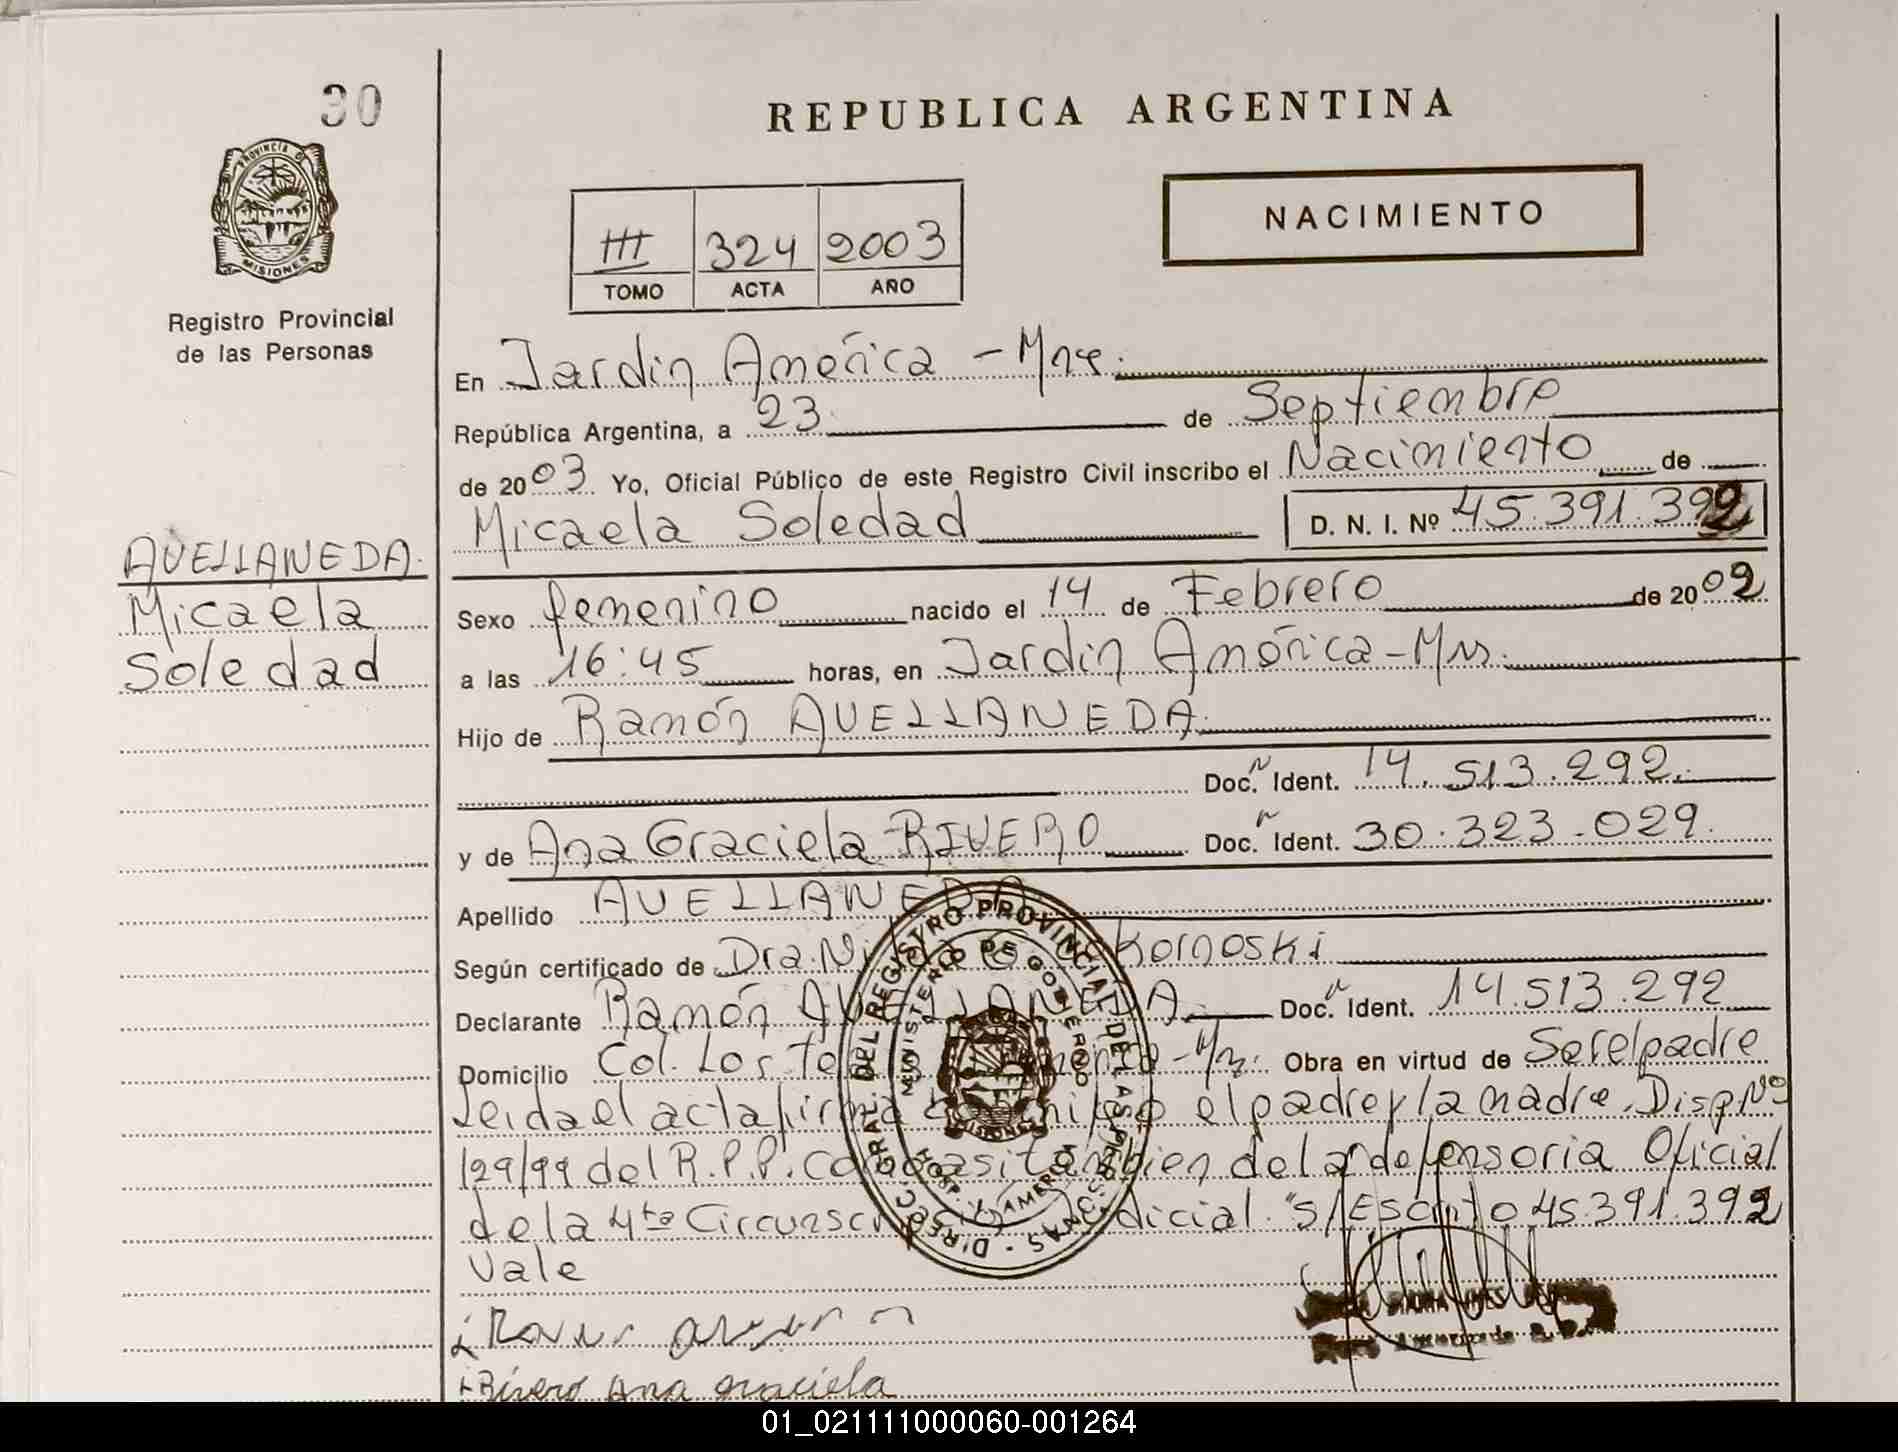 30
PROVINCIA DE
MISIONES
Registro Provincial
de las Personas
AVELLANEDA.
Micaela
Soledad
REPUBLICA ARGENTINA
NACIMIENTO
III 324 2003
TOMO ACTA AÑO
En Jardin América - Mnes.
República Argentina, a 23 de Septiembre
de 2003 Yo, Oficial Público de este Registro Civil inscribo el Nacimiento de
Micaela Soledad D. N. I. Nº 45.391.392
Sexo femenino nacido el 14 de Febrero de 2002
a las 16:45 horas, en Jardin América - Mns.
Hijo de Ramón AVELLANEDA.
Doc. Ident. 14.513.292.
y de Ana Graciela RIVERO Doc. Ident. 30.323.029.
Apellido AVELLANEDA
Según certificado de Dra. Kornoski
Declarante Ramón AVELLANEDA Doc. Ident. 14.513.292
Domicilio Col. Los Obra en virtud de Ser el padre
Leida el acta firma conmigo el padre y la madre. Disp Nº
129/99 del R.P.P. como asi tambien de la defensoria Oficial
de la 4ta Circunscripción Judicial "s/Escrito 45.391.392
Vale
DIRECC. GRAL. DEL REGISTRO PROVINCIAL DE LAS PERSONAS
MINISTERIO DE GOBIERNO
MISIONES
HOSP. J. AMERICA
Rivero Ana graciela
01_021111000060-001264